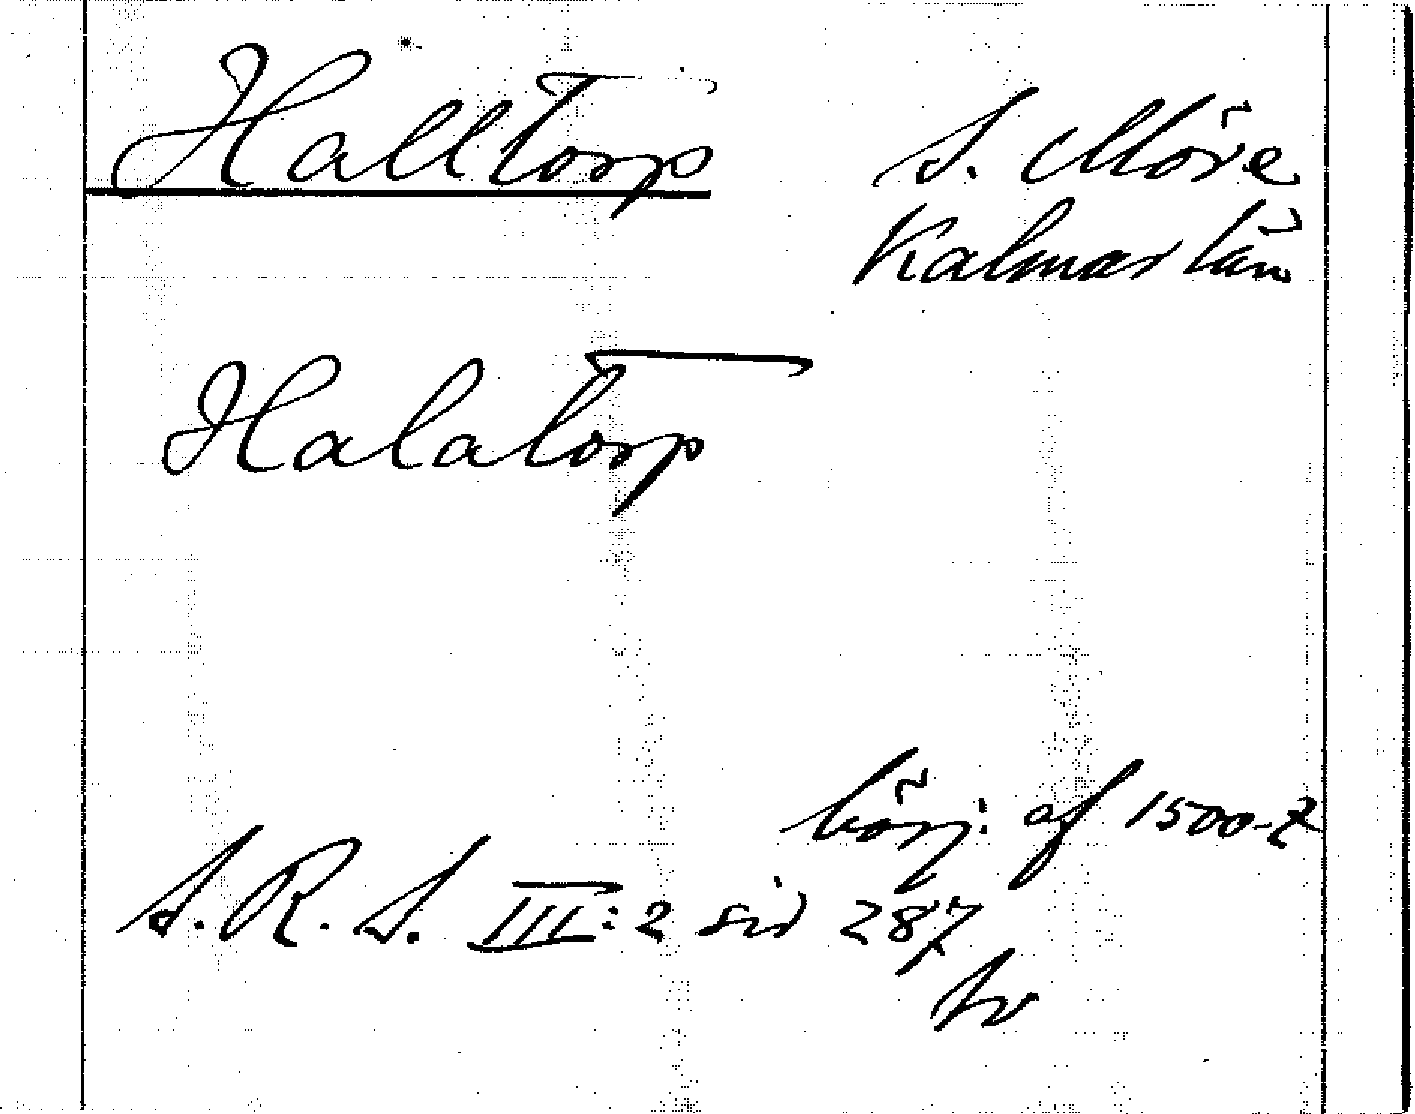 Halltorp S. Möre
Kalmar län
Halatorp
börj. af 1500-t
S. R. S. III:2 sid 287